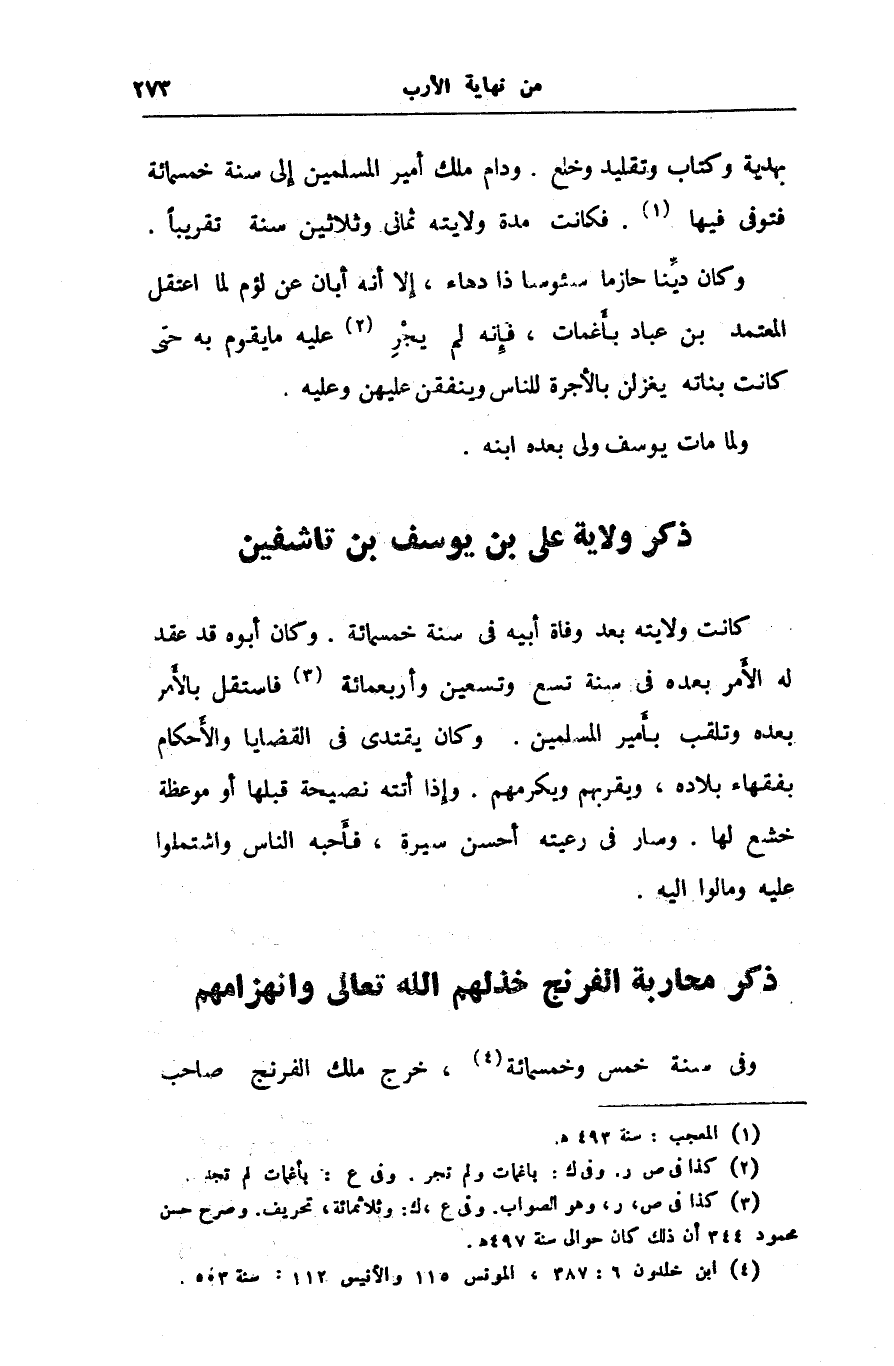 من نهاية الأرب ٢٧٣
بهدية وكتاب وتقليد وخلع . ودام ملك أمير المسلمين إلى سنة خمسمائة
فتوفى فيها (١) . فكانت مدة ولايته ثمانى وثلاثين سنة تقريباً .
وكان ديِّنا حازما سئوسا ذا دهاء ، إلا أنه أبان عن لؤم لما اعتقل
المعتمد بن عباد بأَغمات ، فإنه لم يجْرِ (٢) عليه مايقوم به حتى
كانت بناته يغزلن بالأجرة للناس وينفقن عليهن وعليه .
ولما مات يوسف ولى بعده ابنه .
ذكر ولاية على بن يوسف بن تاشفين
كانت ولايته بعد وفاة أبيه فى سنة خمسمائة . وكان أبوه قد عقد
له الأَمر بعده فى سنة تسع وتسعين وأربعمائة (٣) فاستقل بالأمر
بعده وتلقب بأَمير المسلمين . وكان يقتدى فى القضايا والأَحكام
بفقهاء بلاده ، ويقربهم ويكرمهم . وإذا أتته نصيحة قبلها أو موعظة
خشع لها . وسار فى رعيته أحسن سيرة ، فأَحبه الناس واشتملوا
عليه ومالوا اليه .
ذكر محاربة الفرنج خذلهم الله تعالى وانهزامهم
وفى سنة خمس وخمسمائة (٤) ، خرج ملك الفرنج صاحب
(١) المعجب : سنة ٤٩٣ ه.
(٢) كذا فى ص ر. وفى ك : باغمات ولم تجر . وفى ع : بأغمات لم تجد .
(٣) كذا فى ص، ر، وهو الصواب. وفى ع ،ك: وثلاثمائة، تحريف. وصرح حسن
محمود ٣٤٤ أن ذلك كان حوالى سنة ٤٩٧ه .
(٤) ابن خلدون ٦ : ٣٨٧ ، المونس ١١٥ والأنيس ١١٢ : سنة ٥٠٣ .